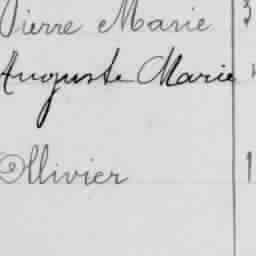 Pierre Marie 3
Auguste Marie
Ollivier 1